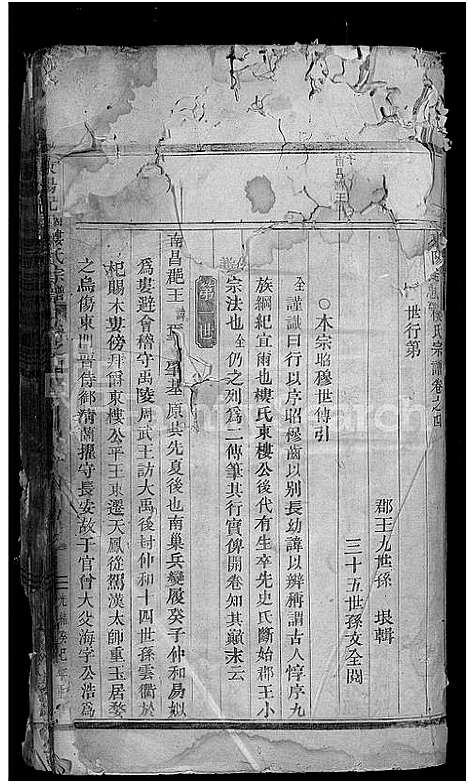 樓氏宗譜卷之四
世行第
郡王九世孫 垠輯
三十五世孫文全閱
○本宗昭穆世傳引
全謹識曰行以序昭穆齒以別長幼諱以辯稱謂古人惇序九
族綱紀宜爾也樓氏東樓公後代有生卒先史氏斷始郡王小
宗法也全仍之列為二傳筆其行實俾開卷知其顛末云
第一世
南昌郡王 原共先夏後也南巢兵變履癸子仲和易姒
為婁避會稽守禹陵周武王訪大禹後封仲和十四世孫雲衢於
杞賜木婁傍拜爵東樓公平王東遷天鳳從焉漢太師重玉居婺
之烏傷東門晉侍御清蘭擢守長安故于官曾大父海字公浩為
樓氏宗譜